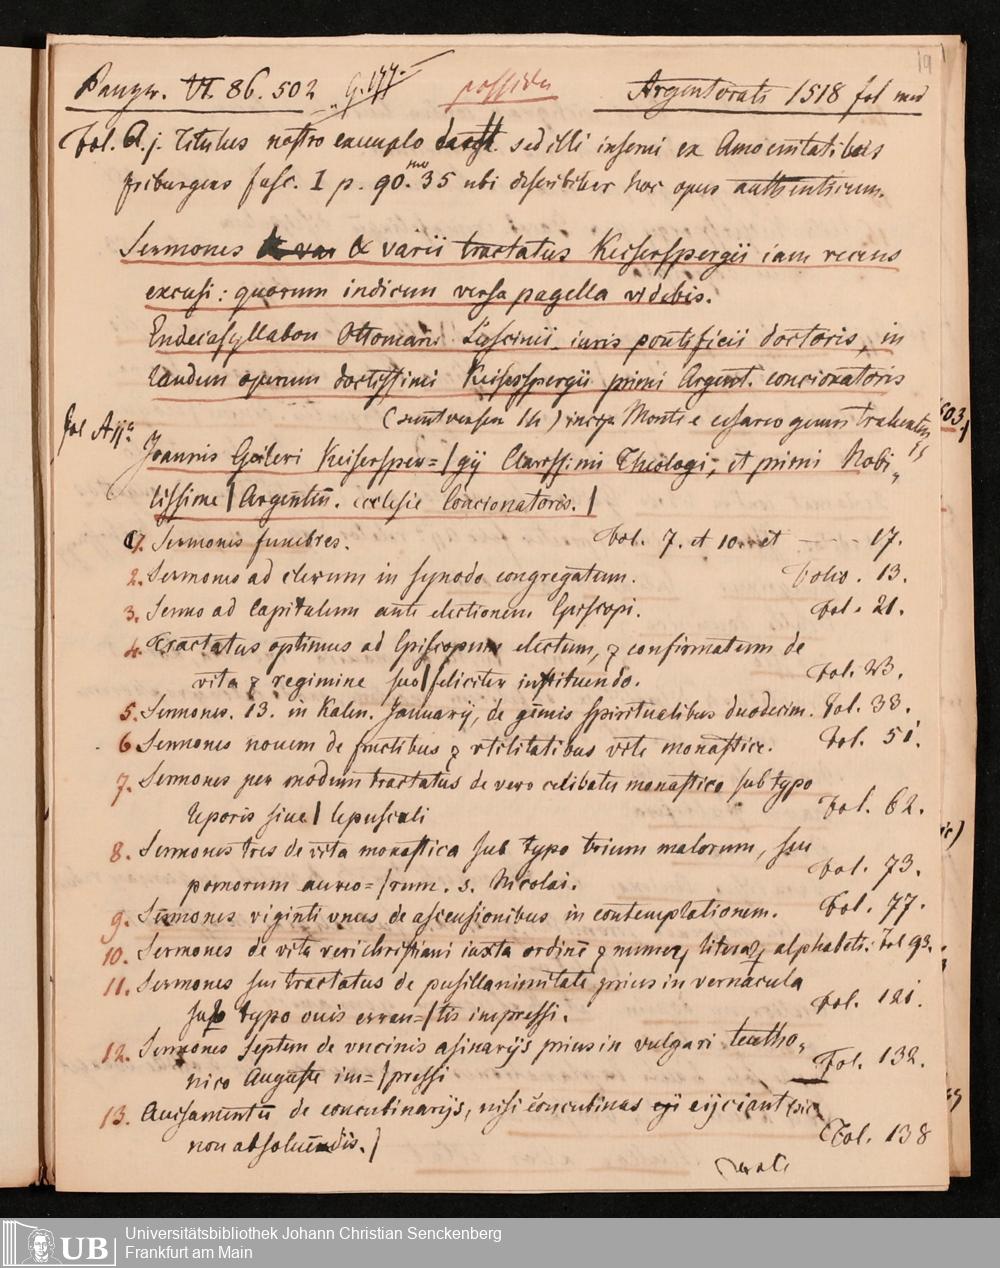 19
Panzer. VI. 86. 502 G. 177. possideo Argentorati 1518 fol med
Fol. A.j. Titulus nostro exemplo deest. sed illi inserui ex Amoenitatibus
friburgens fasc. I p. 90. no 35 ubi describitur hoc opus authenticum.
Sermones & varii tractatus Keiserspergii iam recens
excusi: quorum indicem versa pagella videbis.
Endecasyllabon Ottomari Luscinii iuris pontificii doctoris, in
laudem operum doctissimi Keiserspergii primi Argent. concionatoris
(sunt versus 14)
Fol A ij a
Joannis Geileri Keisersper=/gij Clarissimi Theologi, et primi Nobi-
lissime / Argentin. ecclesie Concionatoris. /
1. Sermones funebres. Fol. 7. et 10. et 17.
2. Sermones ad clerum in synodo congregatum. Folio. 13.
3. Sermo ad Capitulum ante electionem Episcopi. Fol. 21.
4. Tractatus optimus ad Episcopum electum, & confirmatum de
vita & regimine suo / feliciter instituendo. Fol. 23.
5. Sermones. 13. in Kalen. Januarij, de gemis spiritualibus duodecim. Fol. 33.
6 Sermones nouem de fructibus & vtilitatibus vite monastice. Fol. 51.
7. Sermones per modum tractatus de vero celibatu monastico sub typo
leporis siue / lepusculi Fol. 62.
8. Sermones tres de vita monastica sub typo trium malorum, seu
pomorum aureo=/rum. s. Nicolai. Fol. 73.
9. Sermones viginti vnus de ascensionibus in contemplationem. Fol. 77.
10. Sermones de vita veri christiani iuxta ordinē & numerū literarū alphabeti. Fol 93.
11. Sermones seu tractatus de pusillanimitate prius in vernacula
sub typo ouis erran=/tis impressi. Fol. 121.
12. Sermones septem de vncinis asinarijs prius in vulgari teutho-
nico Auguste im=/pressi Fol. 132.
13. Auisamentū de concubinarijs, nisi concubinas eijciant (sic
non absoluēdis. / Fol. 138
Universitätsbibliothek Johann Christian Senckenberg
UB Frankfurt am Main